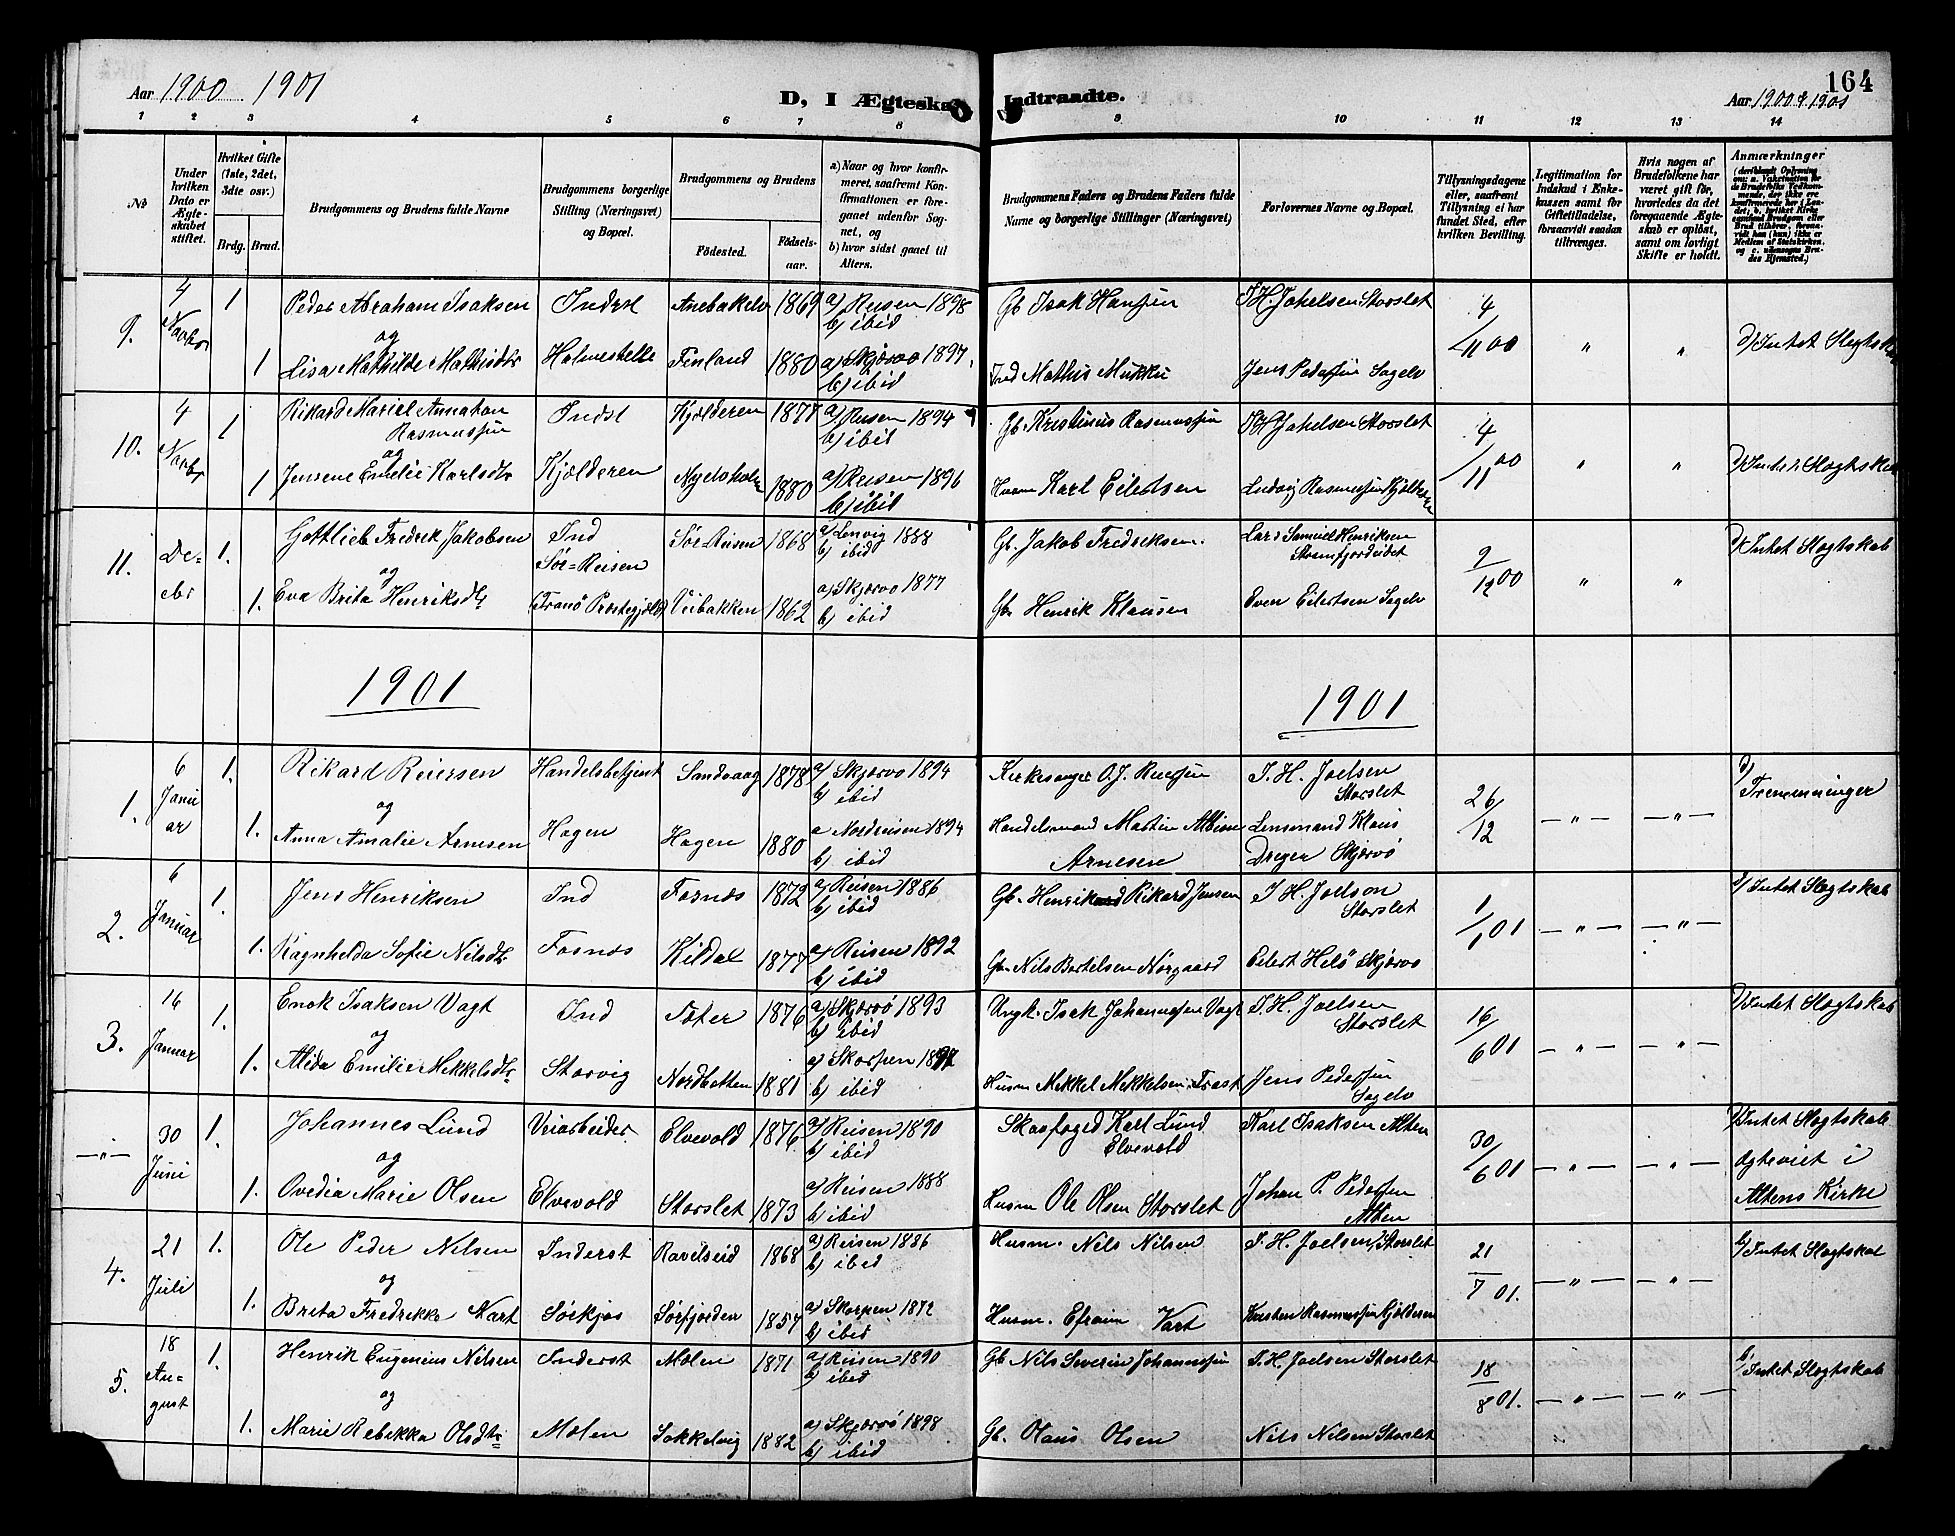 Aar 1900 1901
D, I Ægteska
Indtraadte.
164
Aar 1900 & 1901
1 2 3 4 5 6 7 8 9 10 11 12 13 14
No
Under hvilken Dato er Ægteskabet stiftet.
Hvilket Gifte (1ste, 2det, 3die osv.)
Brdg. Brud.
Brudgommens og Brudens fulde Navne
Brudgommens borgerlige Stilling (Næringsvei) og Bopæl.
Brudgommens og Brudens
Fødested.
Fødselsaar.
a) Naar og hvor konfirmeret, saafremt Konfirmationen er foregaaet udenfor Sognet, og
b) hvor sidst gaaet til Alters.
Brudgommens Faders og Brudens Faders fulde Navne og borgerlige Stillinger (Næringsvei)
Forlovernes Navne og Bopæl.
Tillysningsdagene eller, saafremt Tillysning ei har fundet Sted, efter hvilken Bevilling.
Legitimation for Indskud i Enkekassen samt for Giftetilladelse, forsaavidt saadan tiltrænges.
Hvis nogen af Brudefolkene har været gift før, hvorledes da det foregaaende Ægteskab er opløst, samt om lovligt Skifte er holdt.
Anmærkninger
9. 4 Novbr 1 Peder Abraham Isaksen Inderst 1869 a) Reisen 1898 Gb Isak Hansen J H. Johelsen Storslet 4
og b) ibid
1 Lisa Mathilde Mathisdtr Finland 1880 a) Skjærvø 1897 Mathis Mukku Jens Pedersen Sagelv 11 00 " " Intet Slegtskab
b) ibid
10. 4 Novbr 1 Rikard Mariel Annaton Indst Kjelderen 1877 a) Reisen 1894 Gb. Kristinus Rasmussen J H Johelsen Storslet 4
Rasmussen b) ibid
og
1 Jensene Emilie Karlsdtr Kjelderen 1880 a) Reisen 1896 Husm Karl Eilertsen Ludvig Rasmussen Kjelderen 11 00 " " Intet Slegtskab
b) ibid
11. Decbr 1. Gottlieb Fredrik Jakobsen Ind Sør Reisen 1868 a) Lenvig 1888 Gb. Jakob Fredriksen. Lars Samuel Henriksen 9 Intet Slegtskab
og Sør-Reisen b) ibid Straumfjordeidet
1. Eva Brita Henriksdtr (Tranø Præstegjeld) Veibakken 1862 a) Skjærvø 1877 Gb. Henrik Klausen Even Eilertsen Sagelv 12 00 " "
b) ibid
1901
1901
1. 6 Januar 1. Rikard Reiersen Handelsbetjent Sandvaag 1878 a) Skjærvø 1894 Kirkesanger O. J. J. H. Joelsen 26 Tremenninger
og b) ibid Storslet
1. Anna Amalie Arnesen Hagen Hagen 1880 a Nordreisen 1894 Handelsmand Martin Lensmand Klaus 12 — " — — " —
b) ibid Arnesen Dreyer Skjærvø
2. 6 Januar 1. Jens Henriksen Ind Fosnes 1872 a) Reisen 1886 Gb. Henrik Rikard Jensen J H. Joelson 1 Intet Slegtskab
b) ibid Storslet
1. Ragnhelda Sofie Nilsdtr Fosnes Kildal 1877 a) Reisen 1892 Gb. Nils Bertelsen Norgaard Eilert Skjærvø 1 01 — " — — " —
b) ibid
3. 16 Januar 1. Enok Isaksen Vagt Ind 1876 a) Skjærvø 1893 Ungk. Isak Johannessen Vagt J. H. Joelsen 16 Intet Slegtskab
og b) ibid Storslet
1. Alida Emilie Mekkelsdtr Storvig Nordbotten 1881 a) Skorpen Husm Mekkel Mekkelsen Jens Pedersen 6 01 — " — — " —
b) ibid Sagelv
— " — 30 Juni 1. Johannes Lund Veiarbeider Elvevold 1876 a) Reisen 1890 Skogfoged Karl Lund Karl Isaksen Alten 30 Intet Slegtskab
og b) ibid Elvevold 6 01 — " — — " — Ægteviet i
1. Ovedia Marie Olsen Elvevold Storslet 1873 a) Reisen 1888 Husm Ole Olsen Storslet Johan P. Pedersen Altens Kirke
b) ibid Alten
4. 21 Juli 1. Ole Peder Nilsen Inderst Ravelseid 1868 a) Reisen 1886 Husm. Nils Nilsen J. H. Joelsen Storslet 21 Intet Slegtskab
og b) ibid
1. Brita Fredrikke Vart Sørkjos Sørfjorden 1857 a) Skorpen 1872 Husm. Efraim Vart Kristen Rasmussen Kjelderen 7 01. — " — — " —
b) ibid
5. 18 August 1. Henrik Eugenius Nilsen Inderst Molen 1871 a) Reisen 1890 Gb Nils Severin Johannessen J. H. Joelsen Storslet 18 Intet Slegtskab
og b) ibid
1. Marie Rebekka Olsdtr Molen Sokkelvig 1882 a) Skjærvø 1898 Gb. Olaus Olsen Nils Nilsen Storslet 8 01. — " — — " —
b) ibid